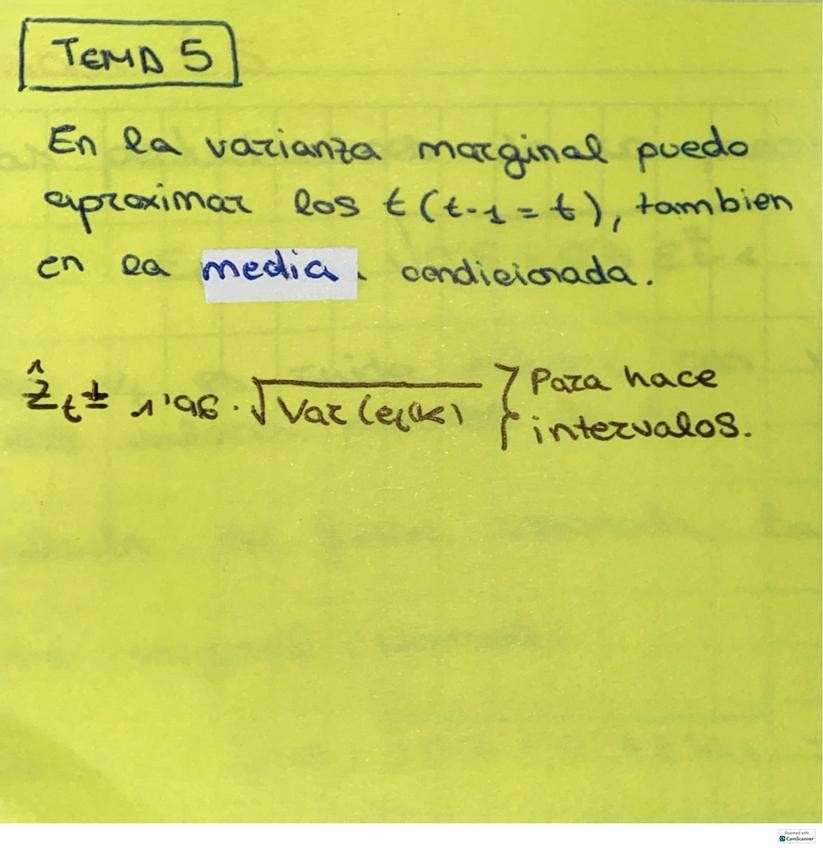 TEMA 5
En la varianza marginal puedo
aproximar los t (t-1 = t), tambien
en la media condicionada.
Ẑt ± 1'96 · √Var (et(k)) } Para hace
intervalos.
Scanned with
CamScanner